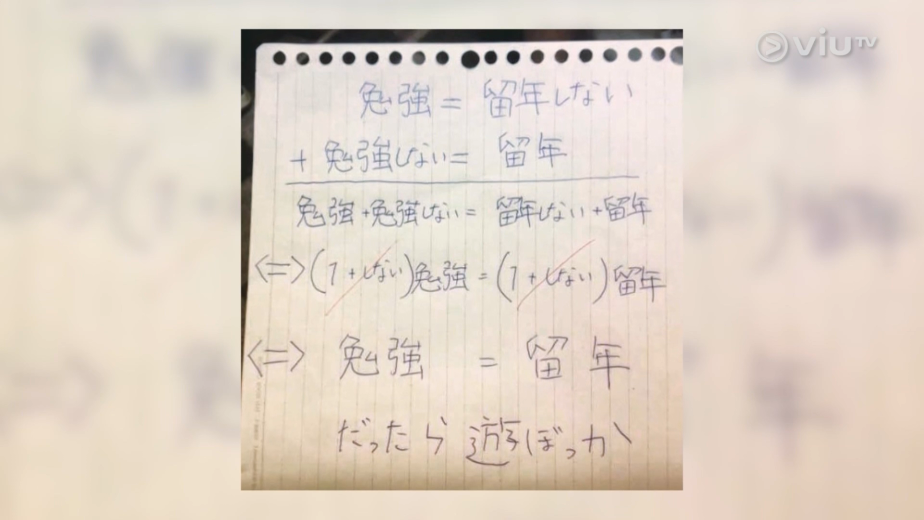 viuTV
勉強 = 留年しない
+ 勉強しない = 留年
勉強+勉強しない = 留年しない+留年
<=> (1+しない)勉強 = (1+しない)留年
<=> 勉強 = 留年
だったら遊ぼっか